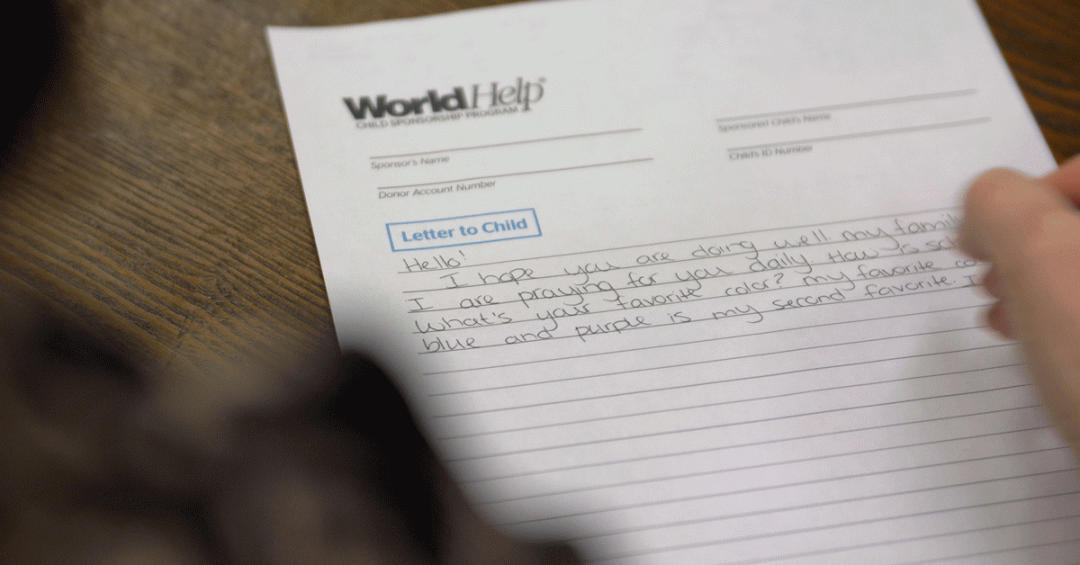 WorldHelp®
CHILD SPONSORSHIP PROGRAM
Sponsor's Name
Donor Account Number
Sponsored Child's Name
Child's ID Number
Letter to Child
Hello!
I hope you are doing well my
I are praying for you daily How is
What's your favorite color? My favorite
blue and purple is my second favorite. I